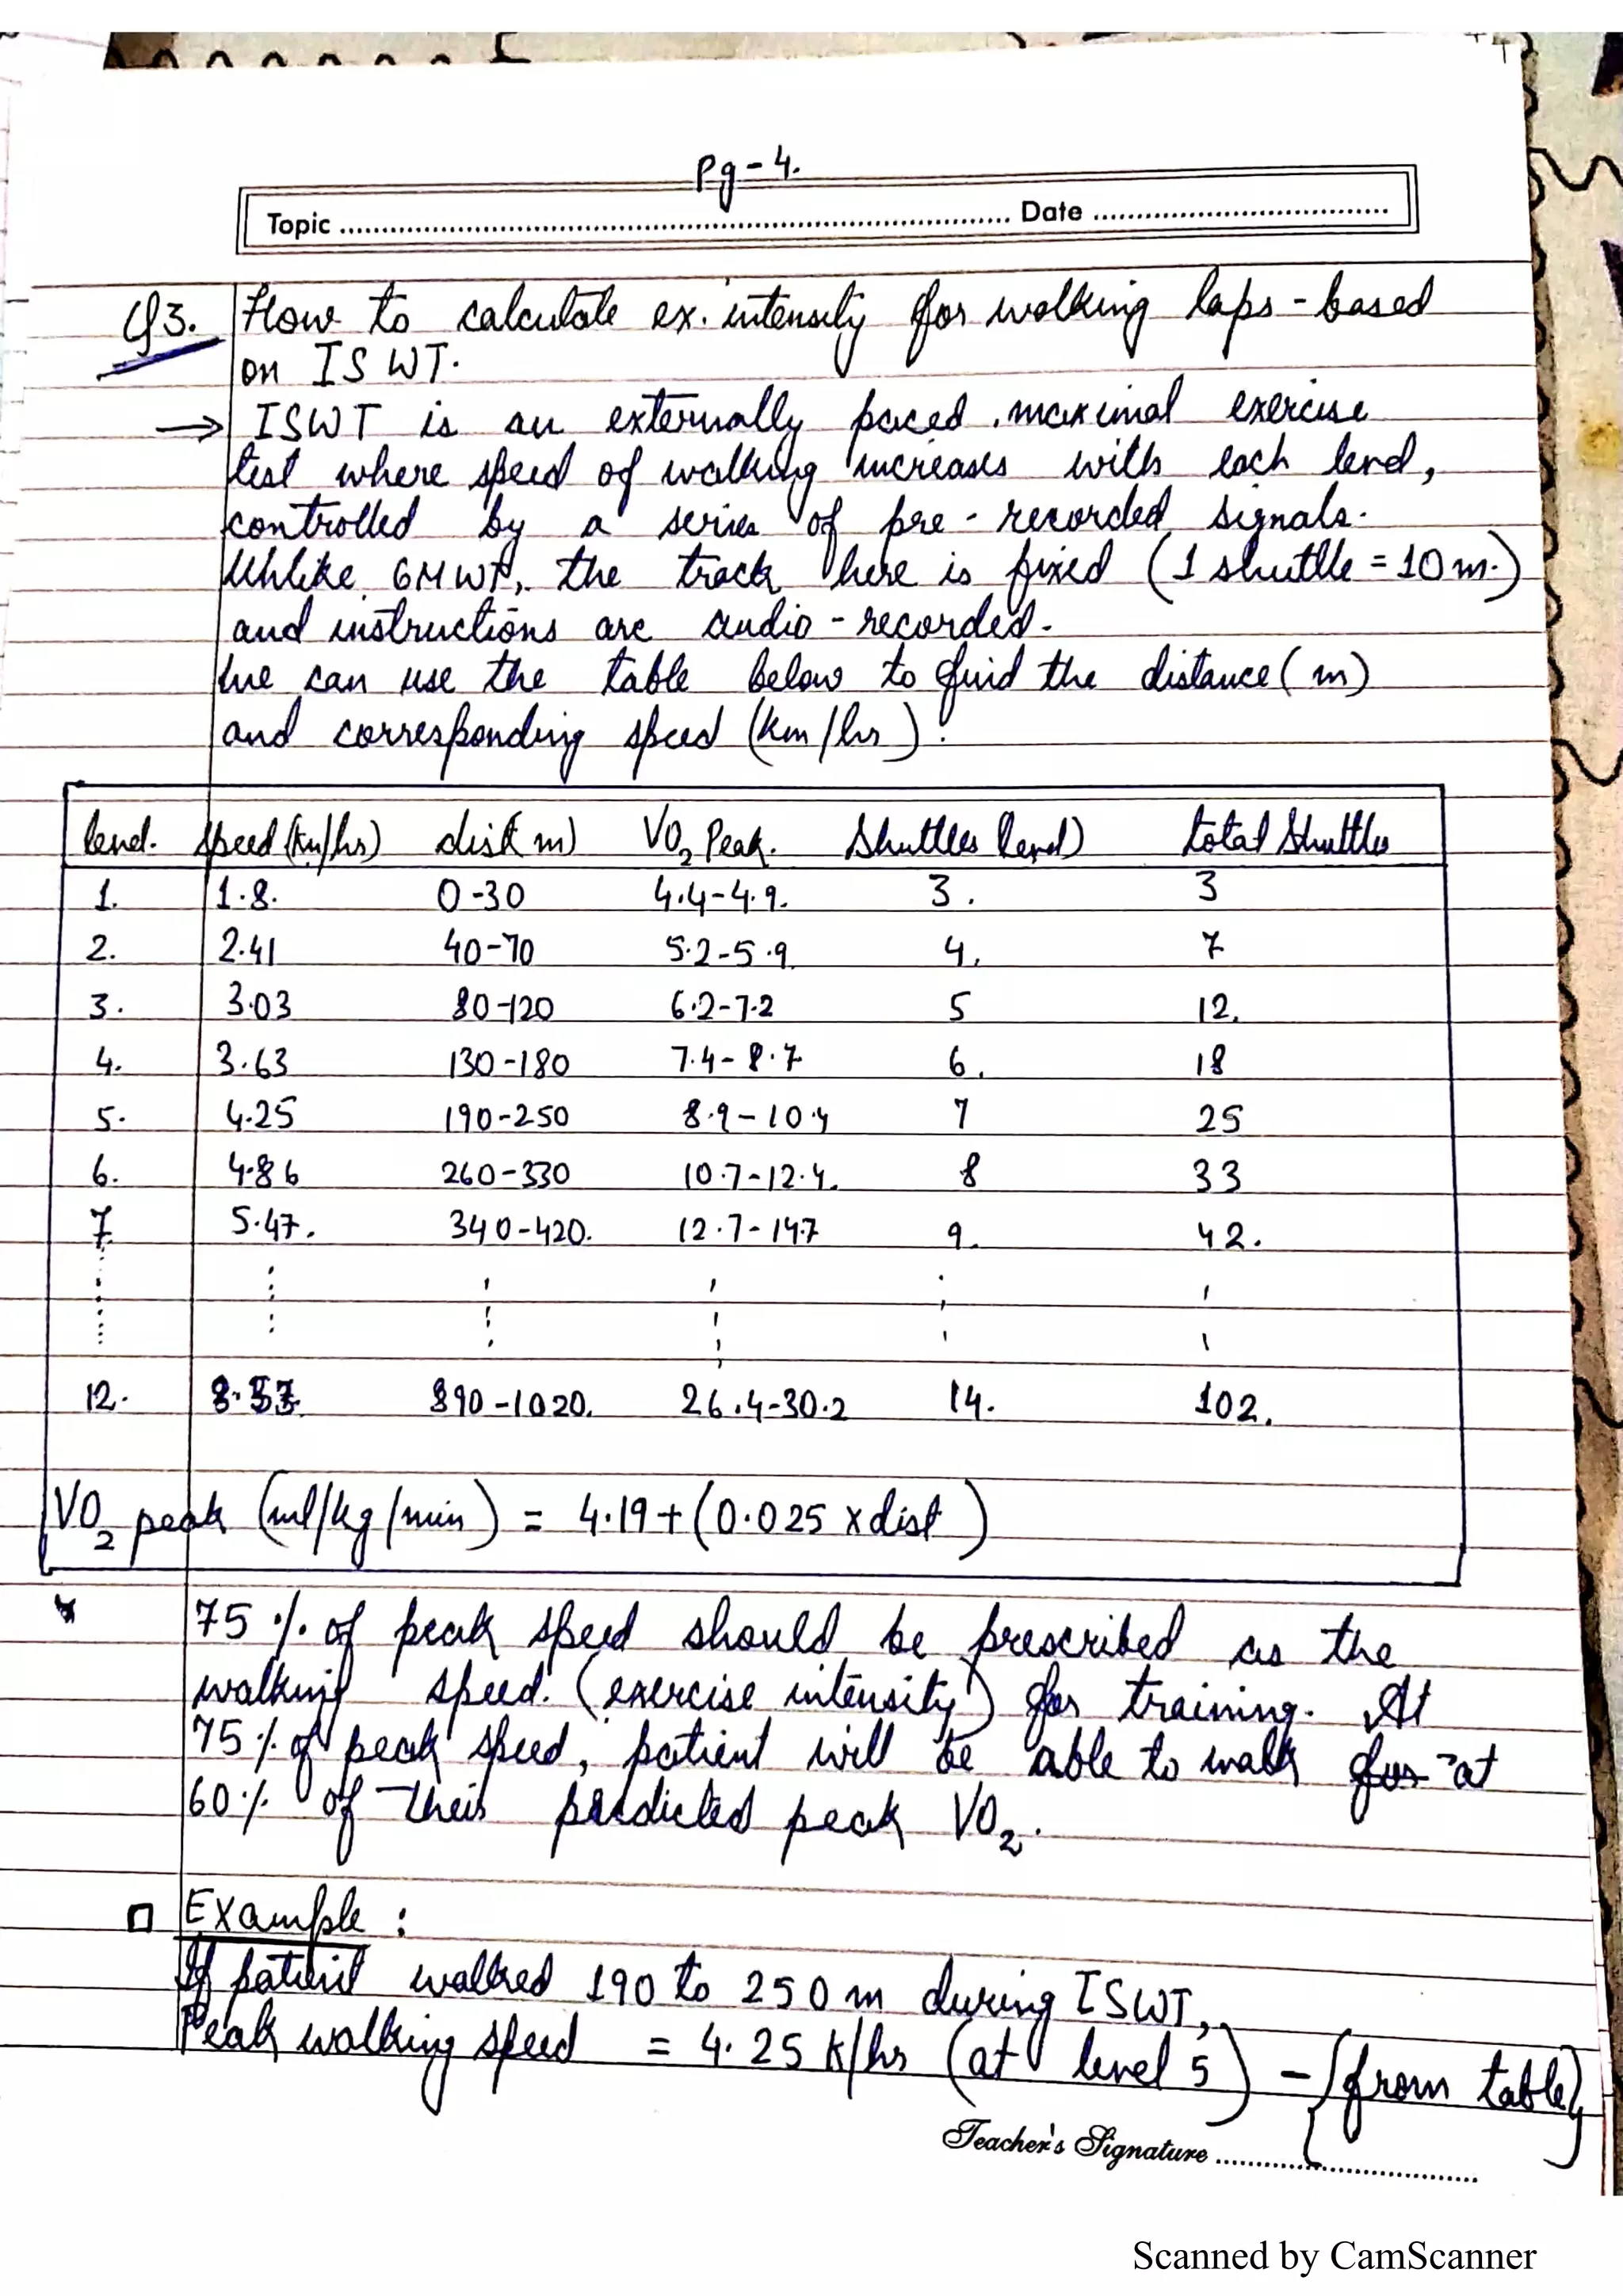 Pg-4.
Topic ........ Date ........
Q3. How to calculate ex. intensity for walking laps - based
on ISWT.
→ ISWT is an externally paced maximal exercise
test where speed of walking increases with each level,
controlled by a series of pre-recorded signals.
Unlike 6MWT, the track here is fixed (1 shuttle = 10m.)
and instructions are audio-recorded.
We can use the table below to find the distance (m)
and corresponding speed (km/hr).
level. speed (km/hr) dist(m) VO2 Peak. Shuttles (level) total Shuttles
1. 1.8. 0-30 4.4-4.9. 3. 3
2. 2.41 40-70 5.2-5.9 4. 7
3. 3.03 80-120 6.2-7.2 5 12.
4. 3.63 130-180 7.4-8.7 6. 18
5. 4.25 190-250 8.9-10.4 7 25
6. 4.86 260-330 10.7-12.4. 8 33
7 5.47. 340-420. 12.7-14.7 9. 42.
12. 890-1020. 26.4-30.2 14. 102.
VO2 peak (ml/kg/min) = 4.19+(0.025 x dist)
75% of peak speed should be prescribed as the
walking speed. (exercise intensity) for training. At
75% of peak speed, patient will be able to walk for at
60% of their predicted peak VO2.
Example:
If patient walked 190 to 250m during ISWT,
Peak walking speed = 4.25 k/hr (at level 5) - {from table}
Teacher's Signature ........
Scanned by CamScanner